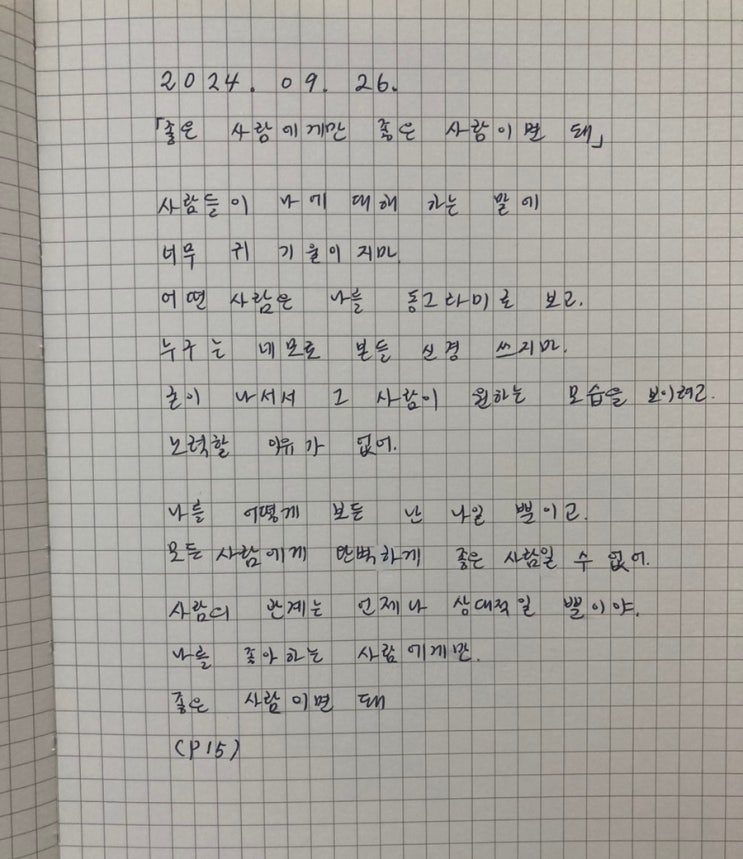 2024. 09. 26.
「좋은 사람에게만 좋은 사람이면 돼」
사람들이 나에 대해 하는 말에
너무 귀 기울이지마.
어떤 사람은 나를 동그라미로 보고.
누구는 네모로 본들 신경 쓰지마.
굳이 나서서 그 사람이 원하는 모습을 보이려고.
노력할 이유가 없어.
나를 어떻게 보든 난 나일 뿐이고.
모든 사람에게 완벽하게 좋은 사람일 수 없어.
사람의 관계는 언제나 상대적일 뿐이야.
나를 좋아하는 사람에게만.
좋은 사람이면 돼
(P15)